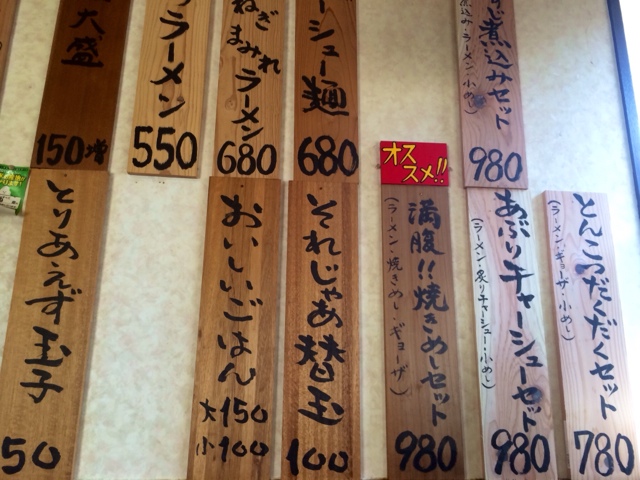 大盛
150増
ラーメン
550
ねぎまみれラーメン
680
ーシュー麺
680
じ煮込みセット
煮込み・ラーメン・小めし)
980
とりあえず玉子
50
おいしいごはん
大150
小100
それじゃあ替玉
100
オススメ!!
満腹!!焼きめしセット
(ラーメン・焼きめし・ギョーザ)
980
あぶりチャーシューセット
(ラーメン・炙りチャーシュー・小めし)
980
とんこつだくだくセット
(ラーメン・ギョーザ・小めし)
780